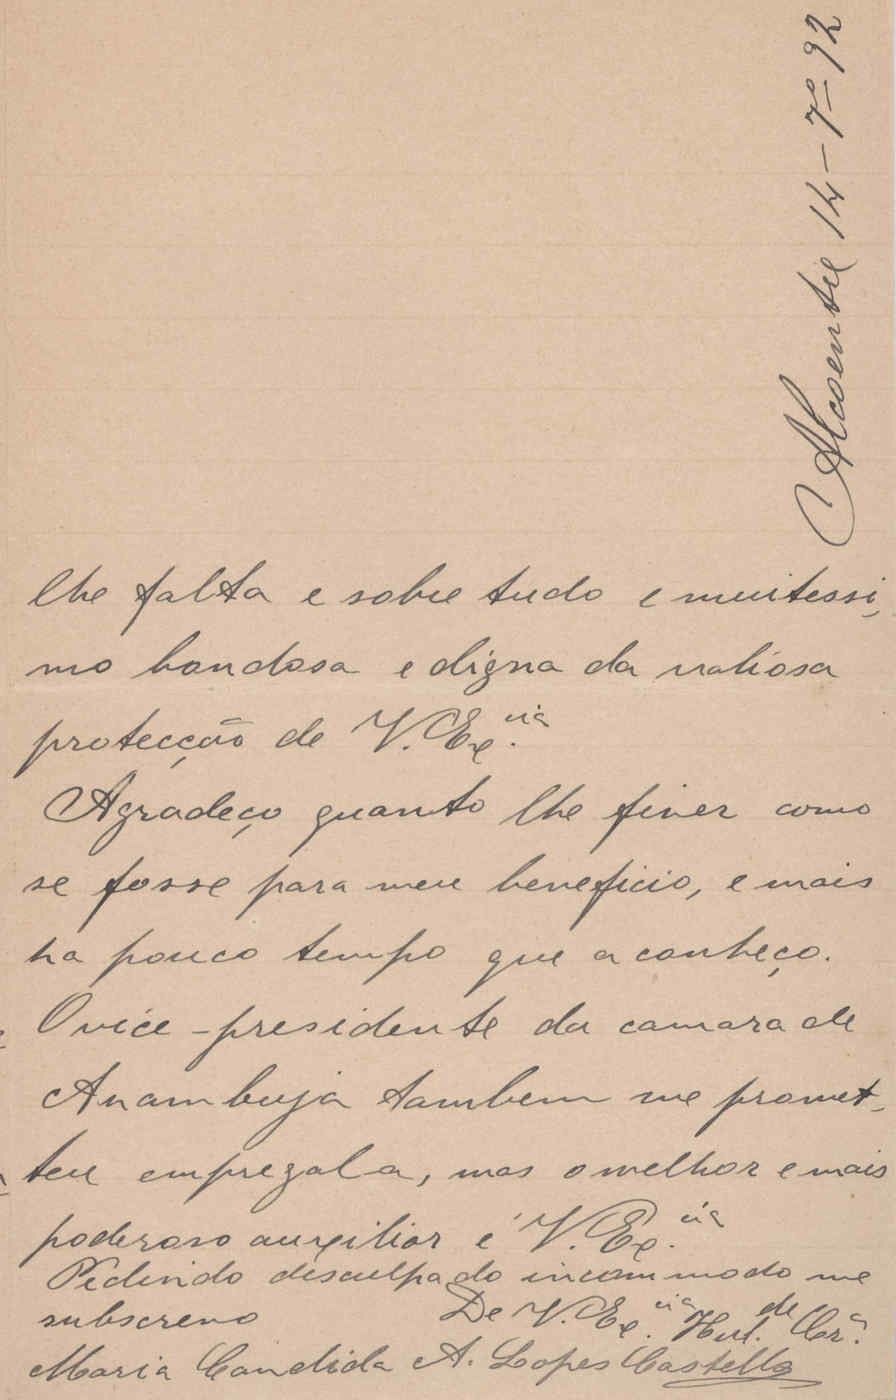 Alcoentre 14-7º-92
lhe falta e sobre tudo e muitessi,
mo bondosa e digna da valiosa
protecção de V. Exᶜⁱᵃ.
Agradeço quanto lhe fizer como
se fosse para meu beneficio, e mais
ha pouco tempo que a conheço.
O vice-presidente da camara de
Azambuja tambem me promet,
teu empregala, mas o melhor e mais
poderoso auxilior é V. Exᶜⁱᵃ.
Pedindo desculpa do incommodo me
subscrevo De V. Exᶜⁱᵃ. Hul.ᵈᵉ Crᵃ.
Maria Candida A. Lopes Castello